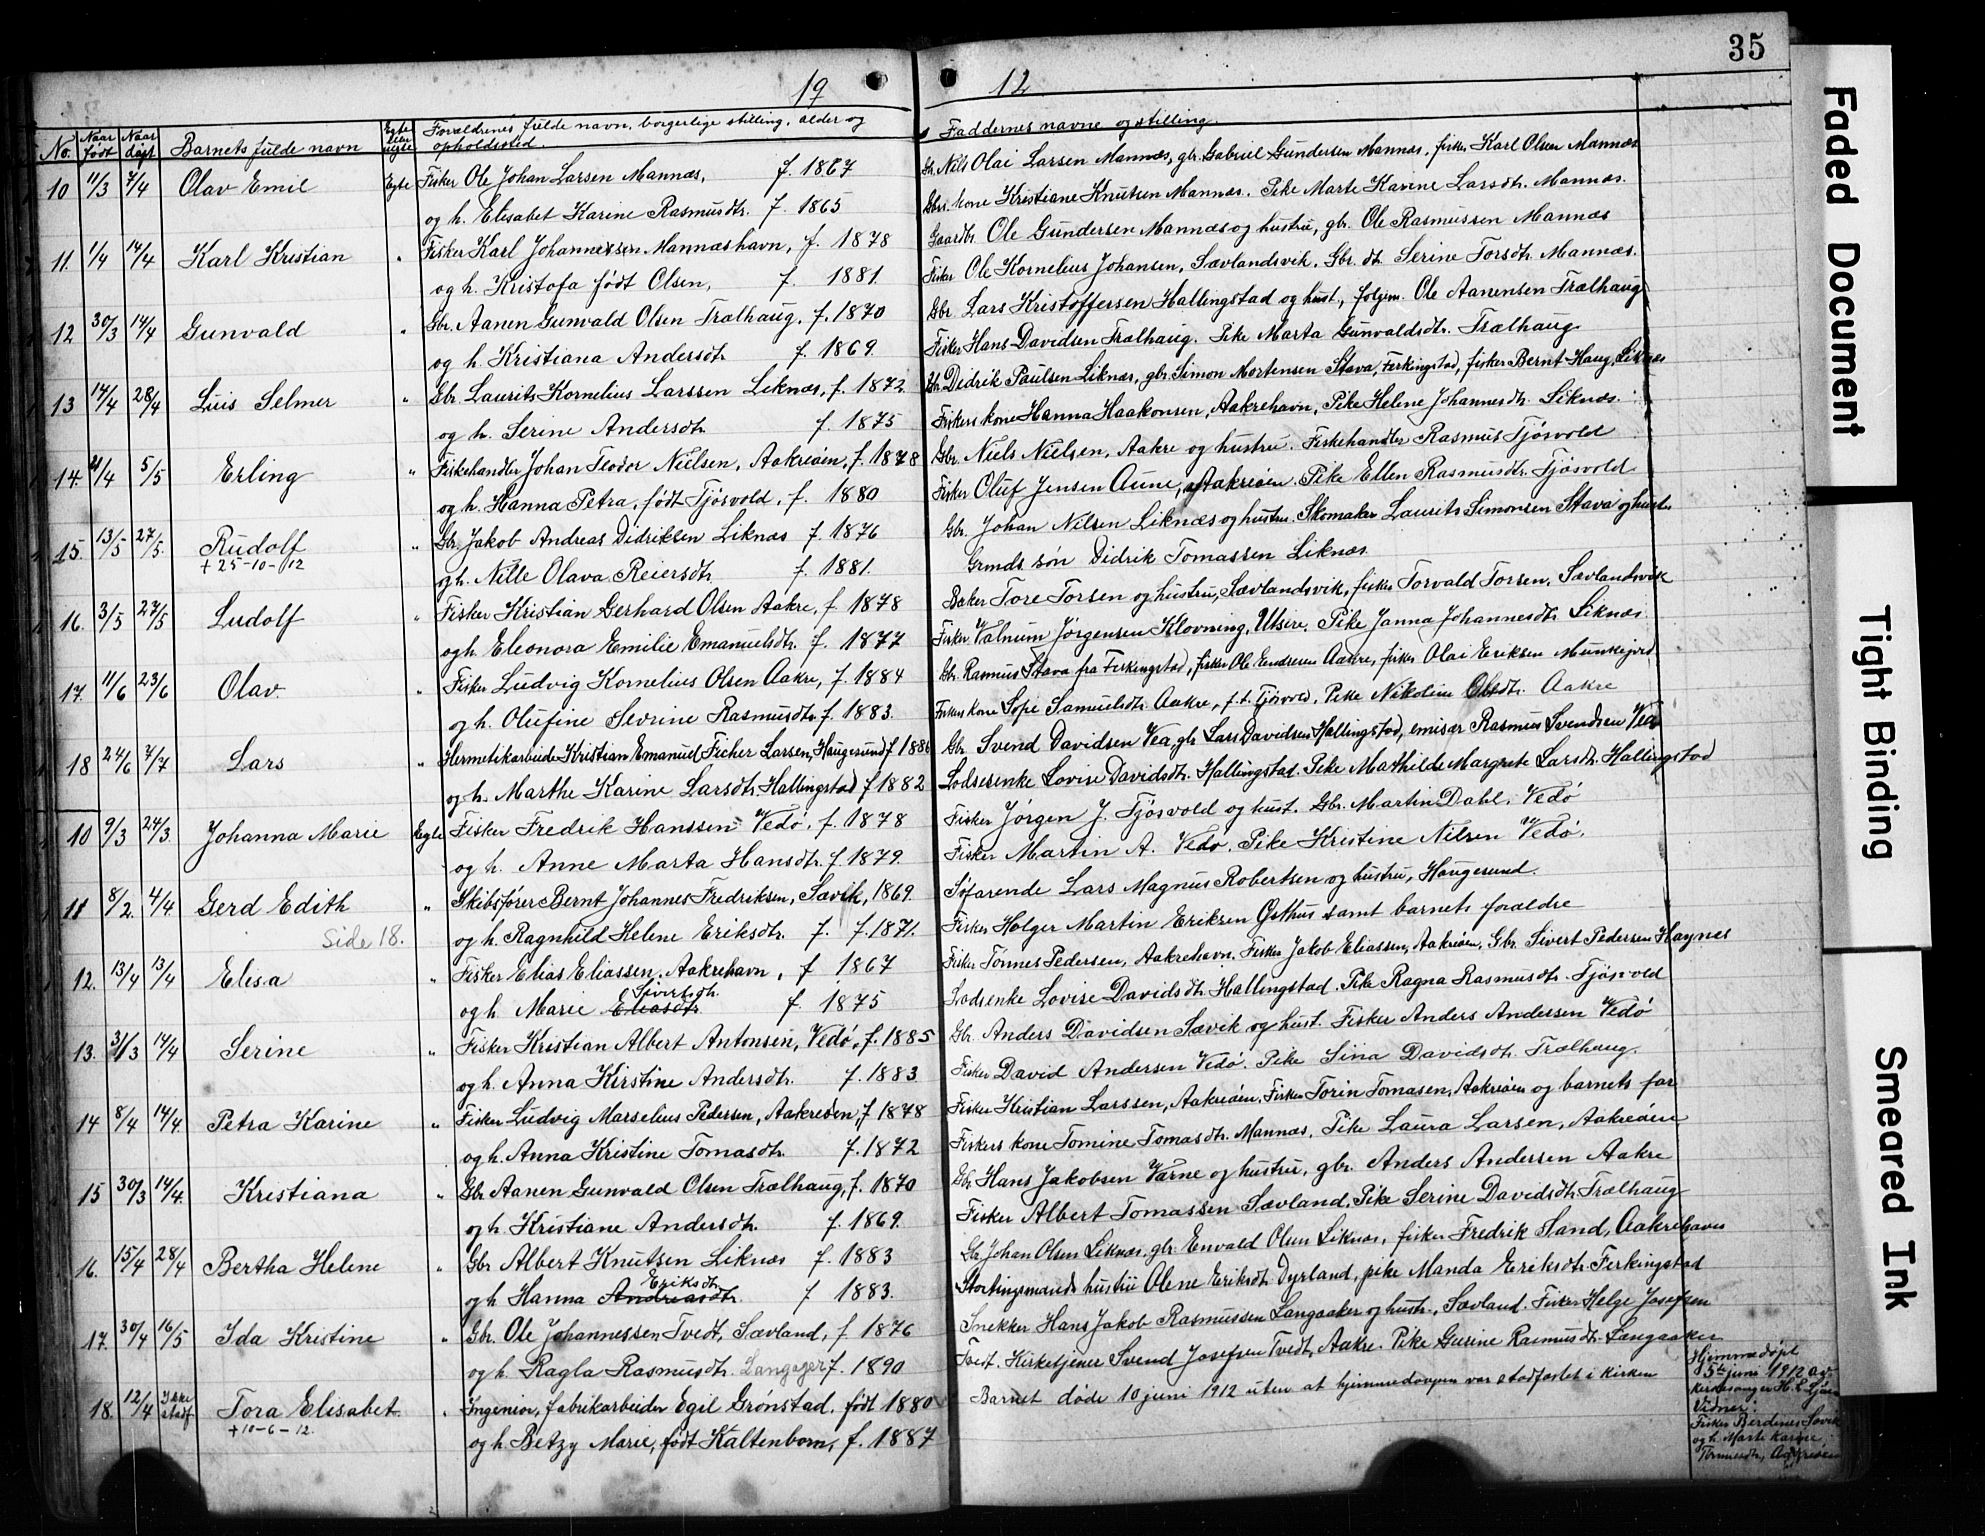 35
19 12
No. Naar født Naar døpt Barnets fulde navn Egte eller uegte Forældrenes fulde navn, borgerlige stilling, alder og opholdssted. Faddernes navne og stilling.
10 11/3 7/4 Olav Emil Egte Fisker Ole Johan Larsen Mannæs, f. 1867
og h. Elisabet Karine Rasmusdtr. f. 1865
Gbr. Nils Olai Larsen Mannæs, gbr. Gabriel Gundersen Mannæs, fisker Karl Olsen Mannæs
Gbrs. kone Kristiane Knutsen Mannæs. Pike Marte Karine Larsdtr. Mannæs.
11. 1/4 14/4 Karl Kristian " Fisker Karl Johannessen Mannæshavn, f. 1878
og h. Kristofa født Olsen, f. 1881.
Gaardbr. Ole Gundersen Mannæs og hustru, gbr. Ole Rasmussen Mannæs
Fisker Ole Kornelius Johansen, Sævlandsvik, Gbr. dt. Serine Torsdtr. Mannæs.
12 30/3 14/4 Gunvald " Gbr. Aanen Gunvald Olsen Trælhaug, f. 1870
og h. Kristiana Andersdtr f. 1869.
Gbr. Lars Kristoffersen Hallingstad og hust., Ole Aanensen Trælhaug
Fisker Hans Davidsen Trælhaug. Pike Marta Gunvaldsdtr. Trælhaug
13 17/4 28/4 Luis Selmer " Gbr. Laurits Kornelius Larssen Liknæs, f. 1872.
og h. Serine Andersdtr f. 1875
Gbr. Didrik Paulsen Liknæs, gbr. Simon Mortensen Stava, Ferkingstad, fisker Bernt Haug, Liknæs
Fiskers kone Hanna Haakonsen, Aakrehavn, Pike Helene Johannesdtr. Liknæs.
14. 21/4 5/5 Erling " Fiskehandler Johan Teodor Nielsen, Aakreøen, f. 1878
og h. Hanna Petra, født Tjøsvold, f. 1880
Gbr. Niels Nielsen, Aakre og hustru. Fiskehandler Rasmus Tjøsvold
Fisker Oluf Jensen Aune, Aakreøen. Pike Ellen Rasmusdtr. Tjøsvold
15. 13/5 27/5. Rudolf " Gbr. Jakob Andreas Didriksen Liknæs f. 1876
+ 25-10-12
og h. Nille Olava Reiersdtr. f. 1881.
Gbr. Johan Nilsen Liknæs og hustru. Skomaker Laurits Simonsen Stava og hustr.
Grmds. søn Didrik Tomassen Liknæs.
16. 3/5 27/5 Ludolf " Fisker Kristian Gerhard Olsen Aakre, f. 1878
og h. Eleonora Emilie Emanuelsdtr. f. 1877
Baker Tore Torsen og hustru, Sævlandsvik, fisker Torvald Torsen, Sævlandsvik
Fisker Valnum Jørgensen Klovning, Utsire. Pike Janna Johannesdtr. Liknæs.
17. 11/6 23/6 Olav " Fisker Ludvig Kornelius Olsen Aakre, f. 1884
og h. Olufine Sevrine Rasmusdtr. f. 1883.
Gbr. Rasmus Stava fra Ferkingstad, fisker Ole Endresen Aakre, fisker Olai Eriksen Munkejord
Fiskers kone Sofie Samuelsdtr. Aakre, f. t. Tjøsvold, Pike Nikoline Olsdtr. Aakre
18 24/6 7/7 Lars " Hermetikarbeider Kristian Emanuel Ficher Larsen, Haugesund f 1886
og h. Marthe Karine Larsdtr. Hallingstad f 1882
Gbr. Svend Davidsen Vea, gbr. Lars Davidsen Hallingstad, emisær Rasmus Svendsen Vea
Lodsenke Lovise Davidsdtr. Hallingstad. Pike Mathilde Margrete Larsdtr. Hallingstad
10 9/3 24/3. Johanna Marie Egte Fisker Fredrik Hanssen Vedø, f. 1878
og h. Anne Marta Hansdtr. f. 1879.
Fisker Jørgen J. Tjøsvold og hust. Gbr. Martin Dahl, Vedø
Fisker Martin A. Vedø. Pike Kristine Nilsen Vedø.
11 8/2. 4/4. Gerd Edith " Skibsfører Bernt Johannes Fredriksen, Sævik, 1869.
Side 18.
og h. Ragnhild Helene Eriksdtr. f. f. 1871.
Søfarende Lars Magnus Robertsen og hustru, Haugesund.
Fisker Holger Martin Eriksen Østhus samt barnets forældre
12. 13/4 13/4 Elisa " Fisker Elias Eliassen, Aakrehavn, f 1867
og h. Marie Eliasdtr. Sivertsdtr. f. 1875
Fisker Tønnes Pedersen, Aakrehavn. Fisker Jakob Eliassen, Aakreøen, Gbr. Sivert Pedersen Haynes
Lodsenke Lovise Davidsdtr. Hallingstad. Pike Ragna Rasmusdtr. Tjøsvold
13. 31/3 14/4 Serine " Fisker Kristian Albert Antonsen, Vedø, f. 1885
og h. Anna Kirstine Andersdtr. f. 1883
Gbr. Anders Davidsen Sævik og hust. Fisker Anders Andersen Vedø
Fisker David Andersen Vedø. Pike Sina Davidsdtr. Trælhaug.
14 8/4 14/4. Petra Karine " Fisker Ludvig Marselius Pedersen, Aakreøen, f 1878
og h. Anna Kristine Tomasdtr. f. 1872
Fisker Kristian Larssen, Aakreøen, Fisker Torin Tomasen, Aakreøen og barnets far
Fiskers kone Tomine Tomasdtr. Mannæs, Pike Laura Larsen, Aakreøen
15 30/3 14/4. Kristiana " Gbr Aanen Gunvald Olsen Trælhaug, f. 1870
og h. Kristiane Andersdtr. f. 1869.
Gbr Hans Jakobsen Varne og hustru, gbr. Anders Andersen Aakre
Fisker Albert Tomassen Sævland. Pike Serine Davidsdtr. Trælhaug
16. 15/4 28/4 Bertha Helene " Gbr Albert Knutsen Liknæs f. 1883
og h. Hanna Andreasdtr. Eriksdtr. f 1883.
Gbr Johan Olsen Liknæs, gbr. Envald Olsen Liknæs, fisker Fredrik Sand, Aakrehavn
Stortingsmands hustru Olene Eriksdtr. Dyrland, pike Manda Eriksdtr. Ferkingstad
17. 30/4 16/5 Ida Kristine " Gbr. Ole Johannessen Tvedt, Sævland, f 1876
og h. Ragla Rasmusdtr. Langager f. 1890
Snekker Hans Jakob Rasmussen Langaaker og hustr., Sævland. Fisker Helge Josefsen
Tvedt. Kirketjener Svend Josefsen Tvedt, Aakre. Pike Gurine Rasmusdtr. Langaaker
18. 12/4 Ikke stadf. Tora Elisabet. " Ingeniør, fabrikarbeider Egil Grønstad, født 1880
+ 10-6-12.
og h. Betzy Marie, født Kaltenborn, f. 1887
Barnet døde 10 juni 1912 uten at hjemmedaapen var stadfæstet i kirken
Hjemmedøpt
5te juni 1912 av
kirkesanger
Vidner:
Fisker Berdines Sævik
og h. Marte Karine
Tønnesdtr., Aakreøen
Faded Document
Tight Binding
Smeared Ink